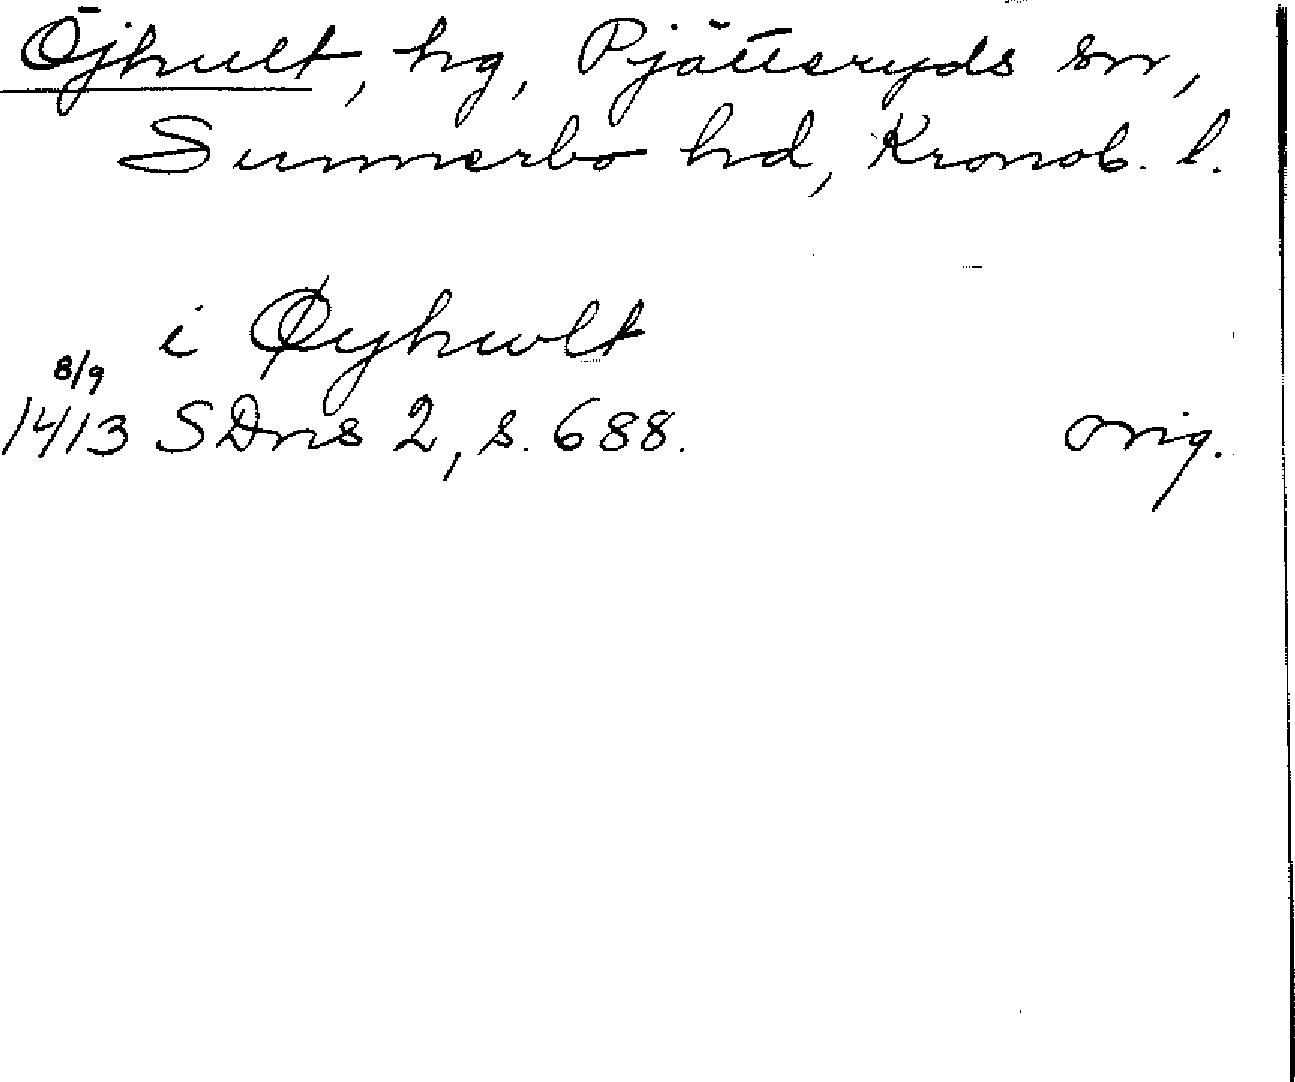 Öjhult, hg, Pjätteryds sn,
Sunnerbo hd, Kronob. l.
i Øyhwlt
8/9
1413 SDns 2, s. 688. orig.